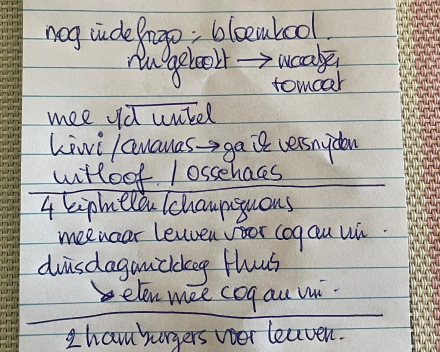 nog in de frigo : bloemkool.
gekookt →
tomaat
mee v/d winkel
kiwi / ananas → ga ik versnijden
witloof / ossehaas
4 kipfilletten / champignons
mee naar Leuven voor coq au vin.
dinsdagmiddag thuis
↘ eten mee coq au vin.
2 hamburgers voor Leuven.